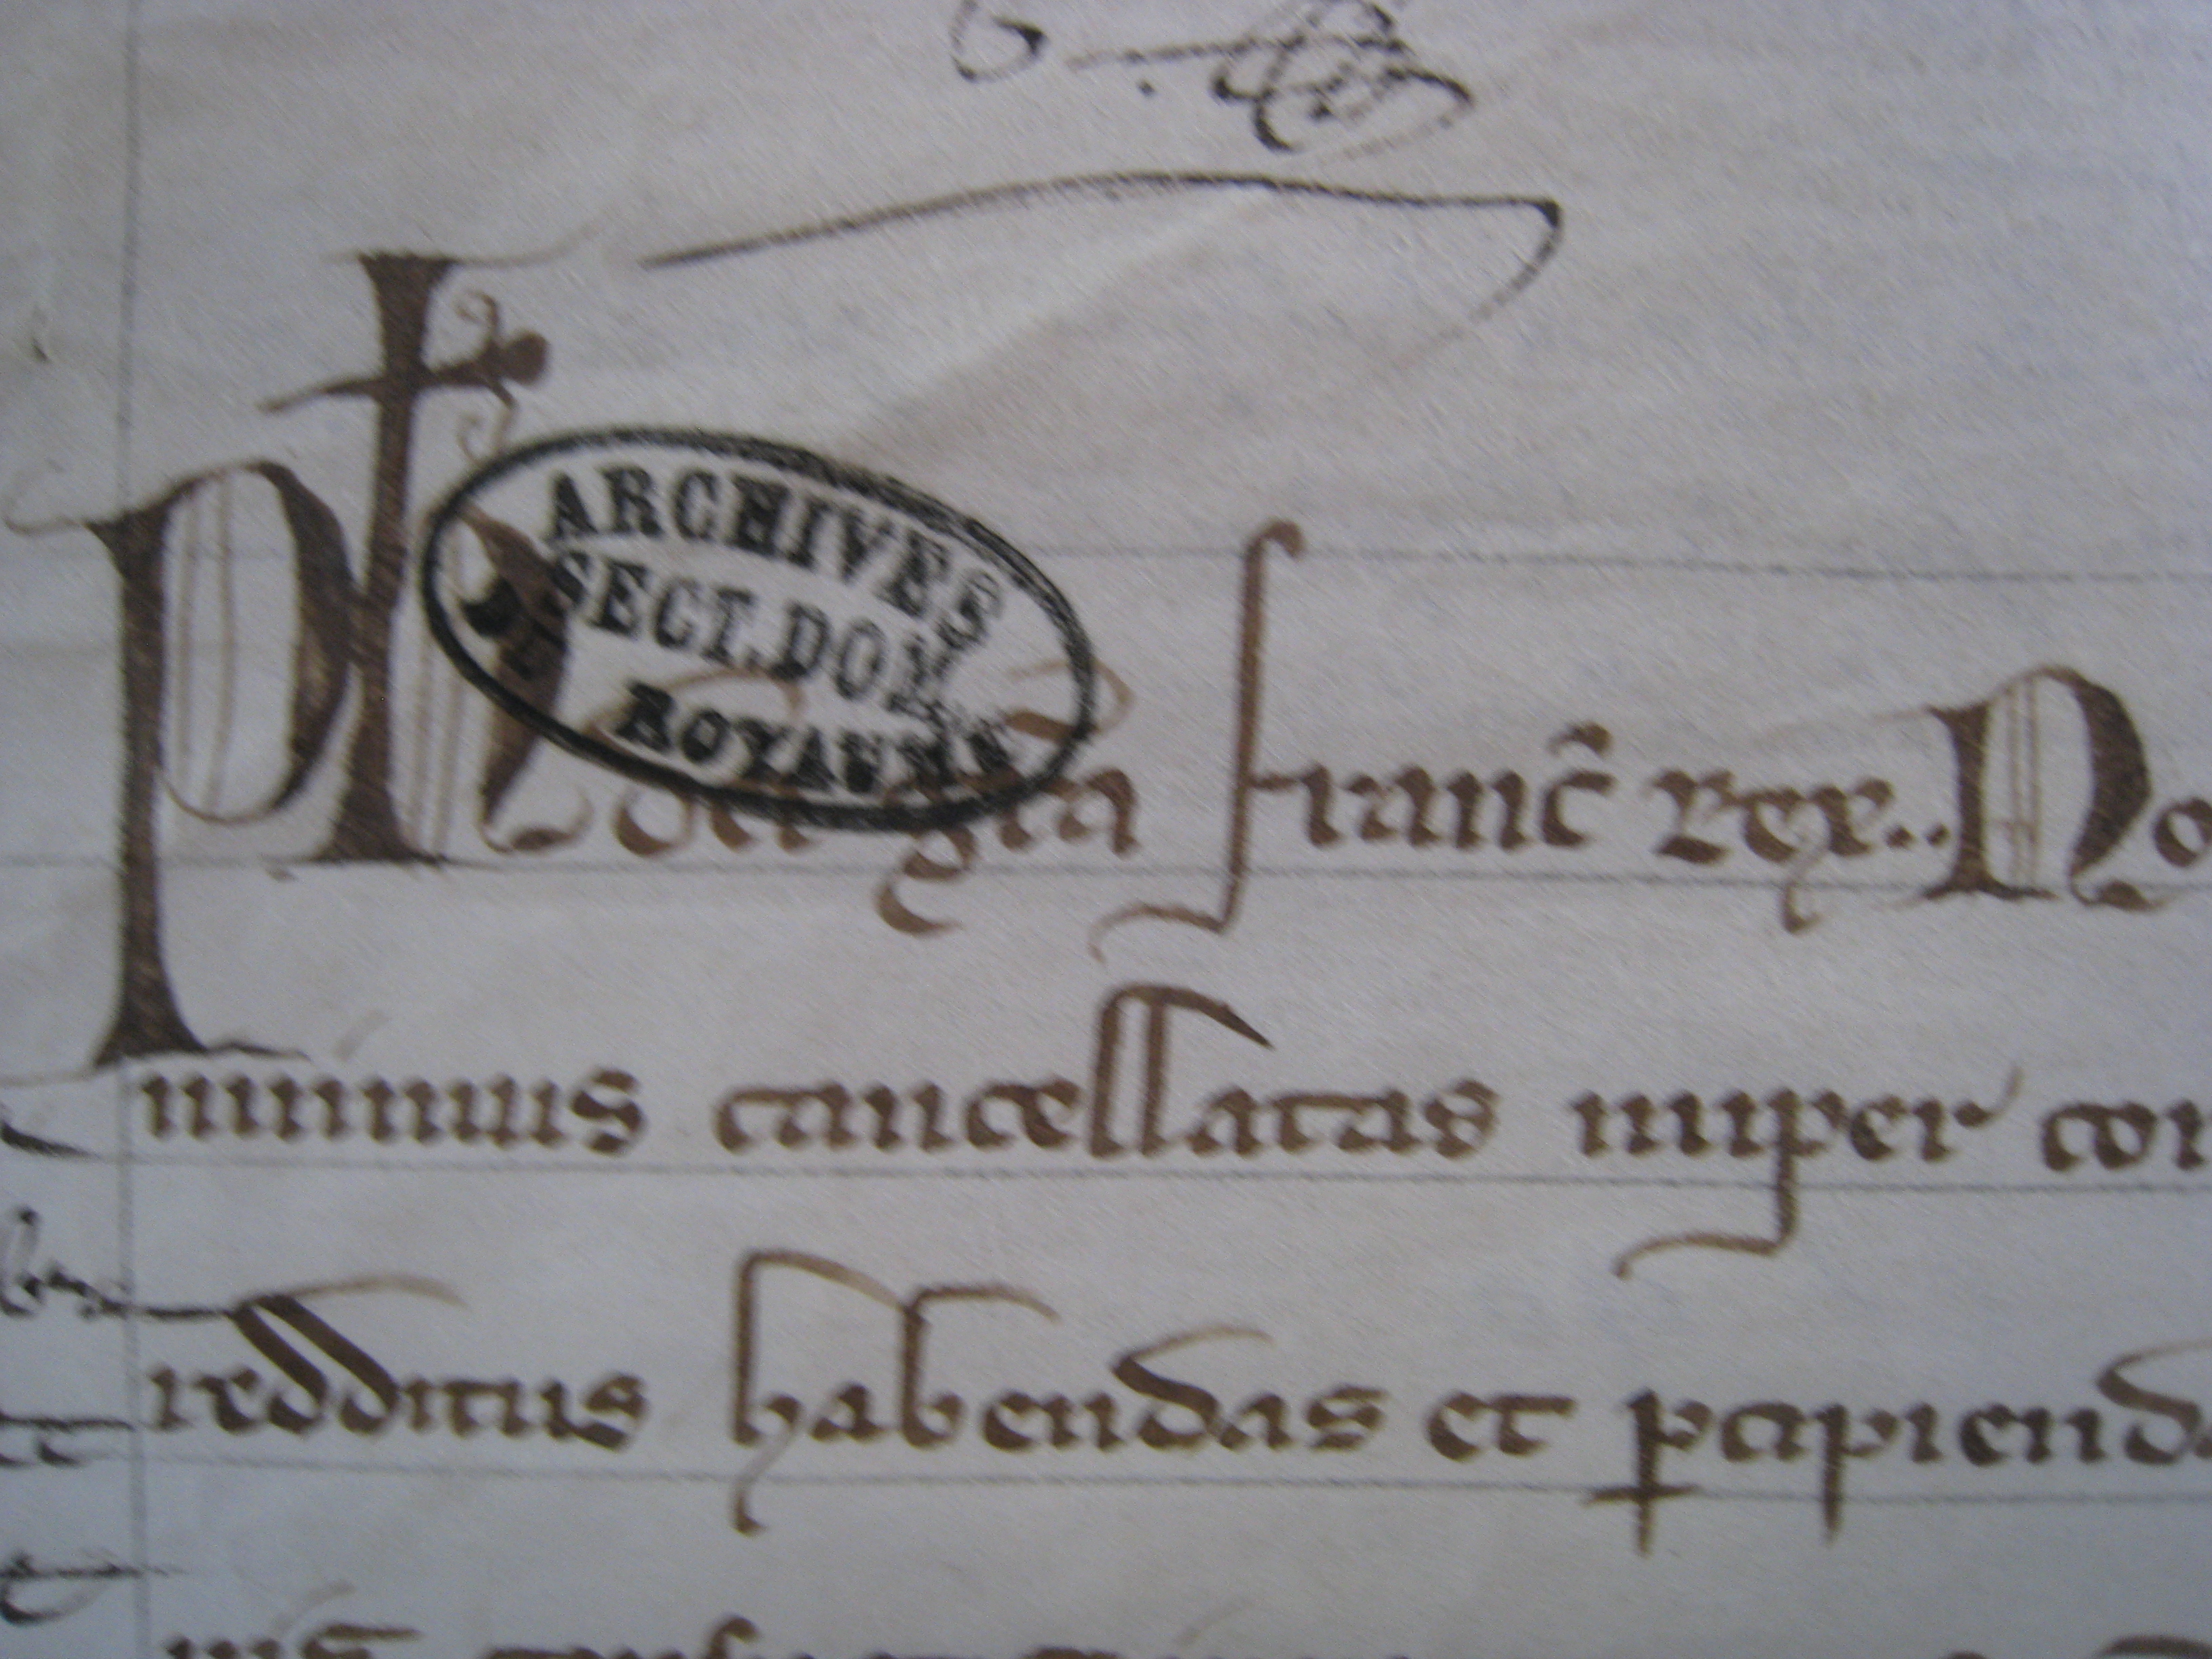 ARCHIVES
SECT. DOM
ROYAUME
Ph dei gra franc rex.. No
nimus cancellatas nuper con
redditus habendas et pcipienda